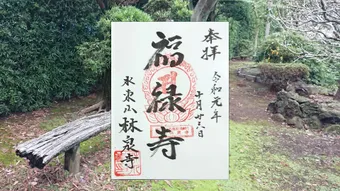 奉拝
令和元年
十月廿六日
福緑寺
水東山
林泉寺